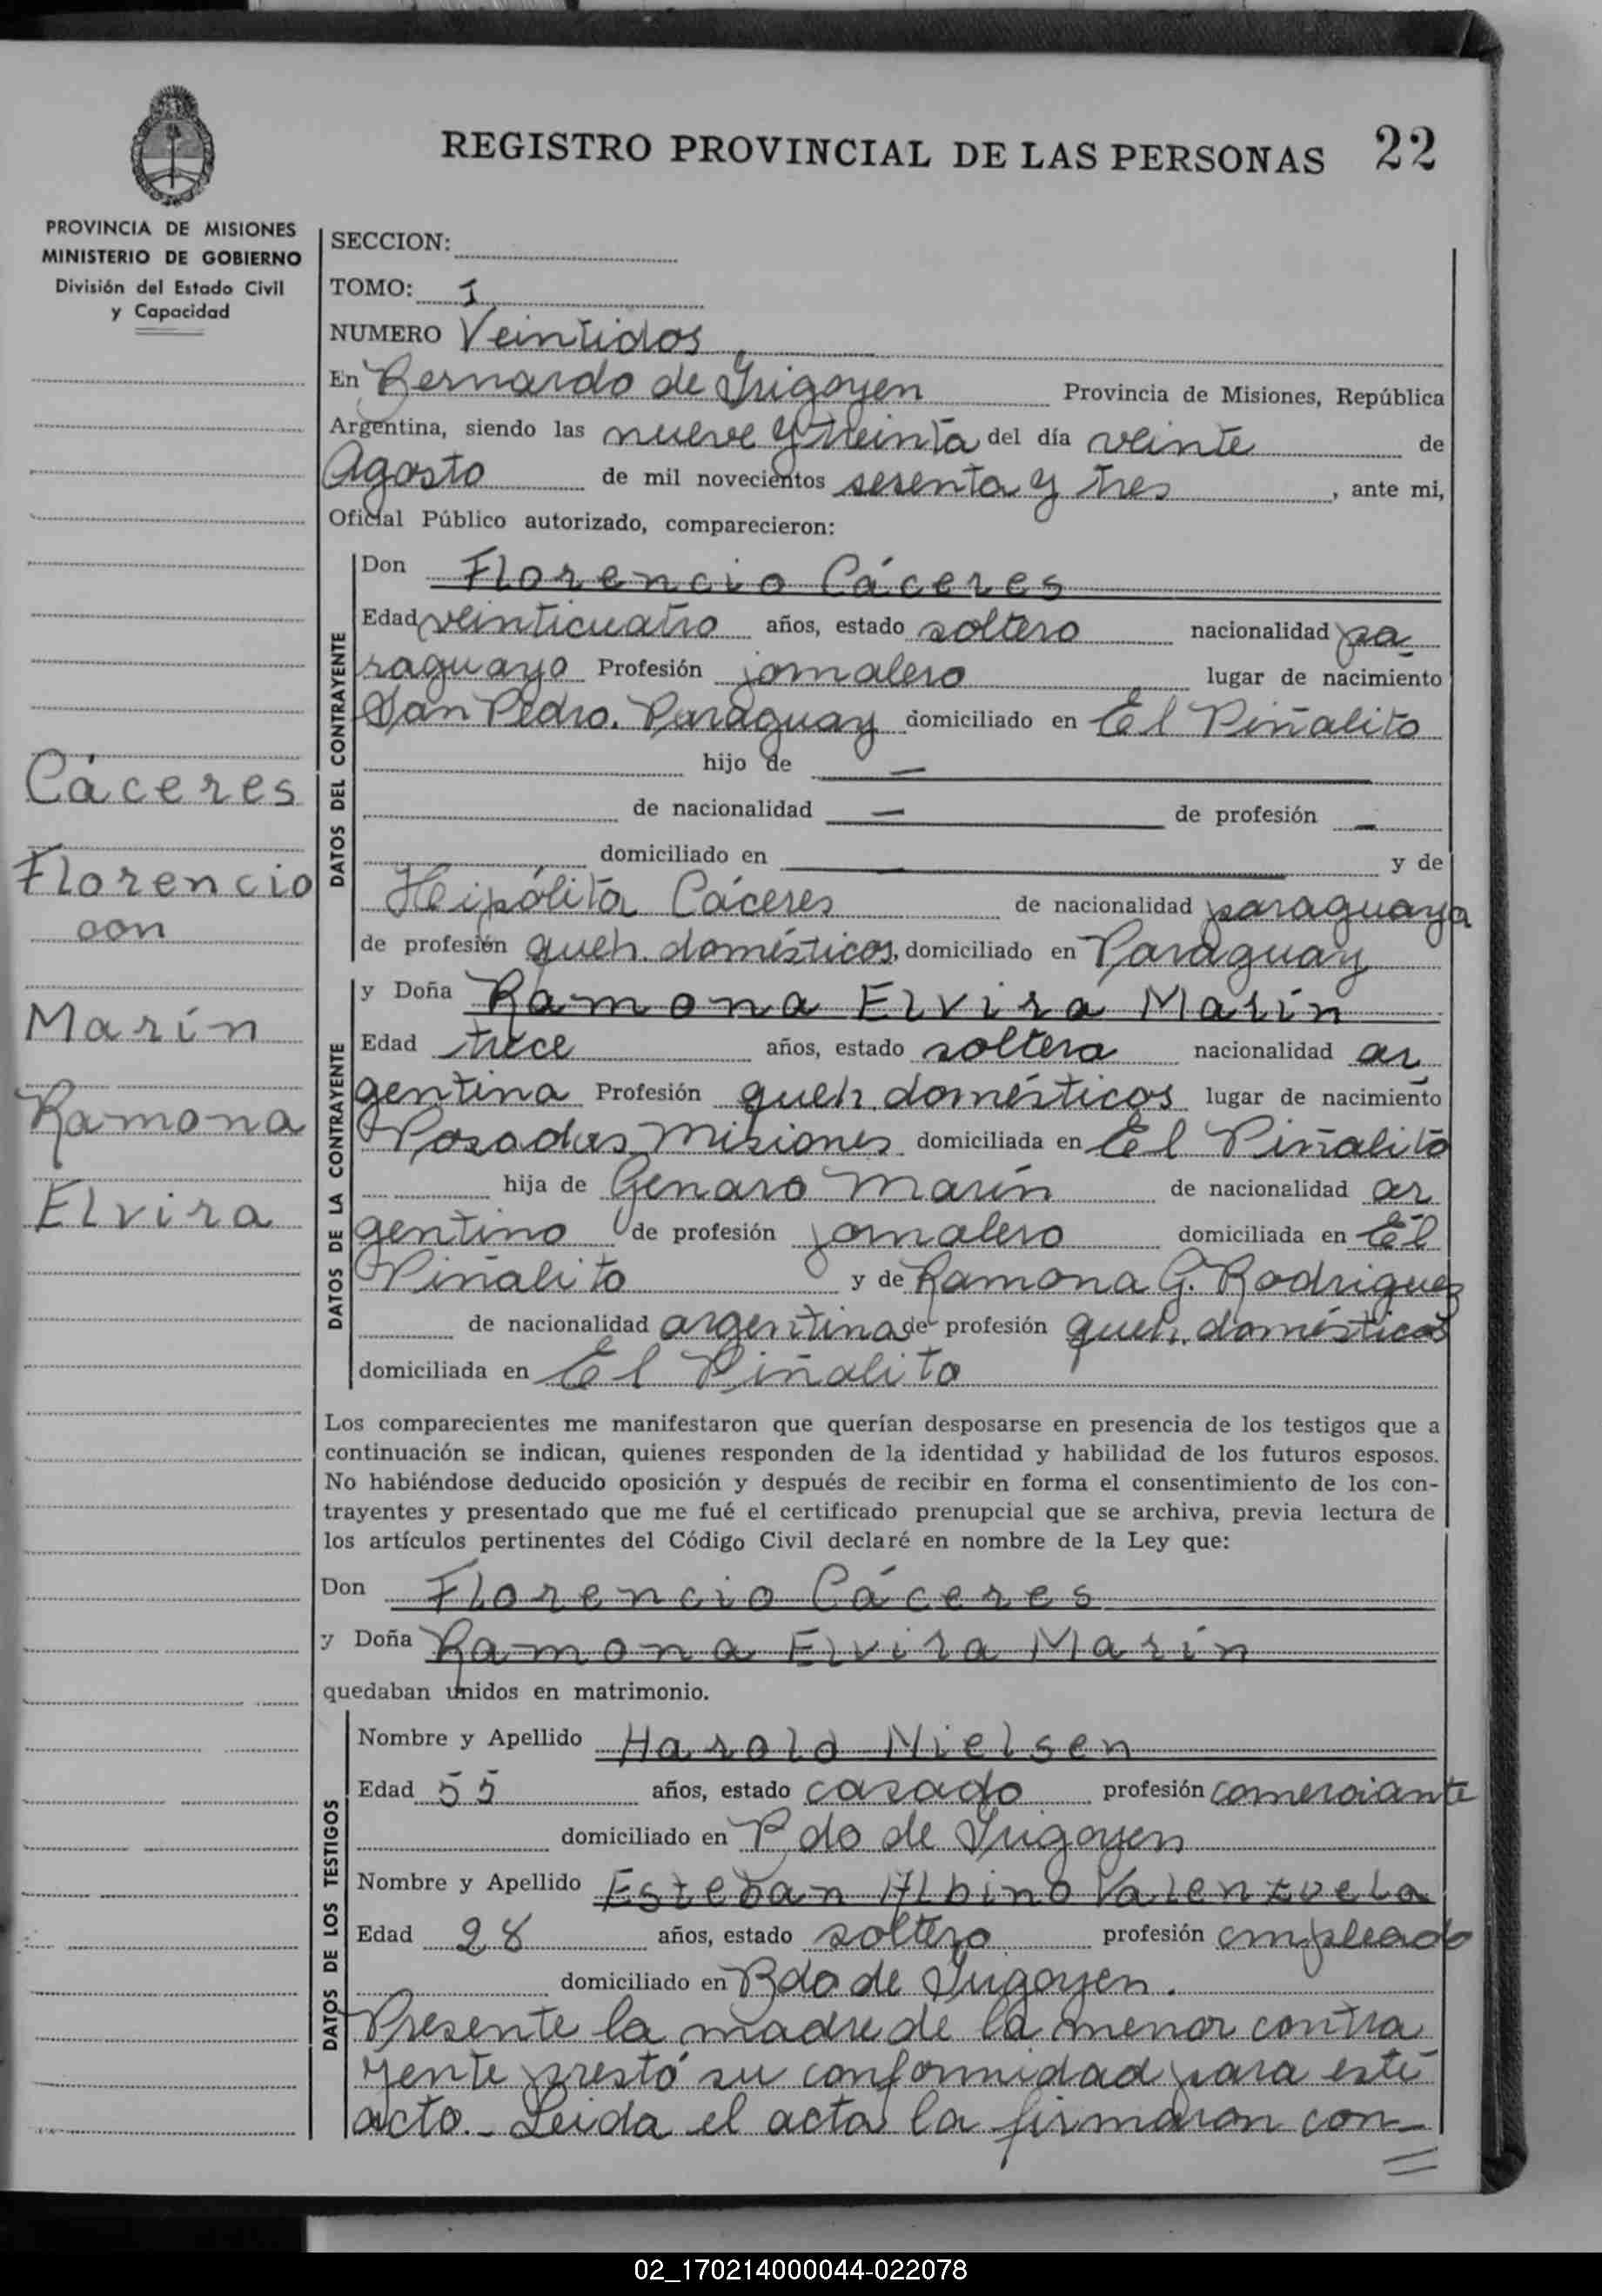 REGISTRO PROVINCIAL DE LAS PERSONAS 22
PROVINCIA DE MISIONES
MINISTERIO DE GOBIERNO
División del Estado Civil
y Capacidad
Cáceres
Florencio
con
Marín
Ramona
Elvira
SECCION:
TOMO: I
NUMERO Veintidos
En Bernardo de Irigoyen Provincia de Misiones, República
Argentina, siendo las nueve y treinta del día veinte de
Agosto de mil novecientos sesenta y tres, ante mi,
Oficial Público autorizado, comparecieron:
DATOS DEL CONTRAYENTE
Don Florencio Cáceres
Edad veinticuatro años, estado soltero nacionalidad pa
raguayo Profesión jornalero lugar de nacimiento
San Pedro. Paraguay domiciliado en El Piñalito
hijo de —
de nacionalidad — de profesión —
domiciliado en y de
Heipólita Cáceres de nacionalidad paraguaya
de profesión queh. domésticos, domiciliado en Paraguay
DATOS DE LA CONTRAYENTE
y Doña Ramona Elvira Marín
Edad trece años, estado soltera nacionalidad ar
gentina Profesión queh. domésticos lugar de nacimiento
Posadas Misiones domiciliada en El Piñalito
hija de Genaro Marín de nacionalidad ar
gentino de profesión jornalero domiciliada en El
Piñalito y de Ramona G. Rodriguez
de nacionalidad argentina de profesión queh. domésticos
domiciliada en El Piñalito
Los comparecientes me manifestaron que querían desposarse en presencia de los testigos que a
continuación se indican, quienes responden de la identidad y habilidad de los futuros esposos.
No habiéndose deducido oposición y después de recibir en forma el consentimiento de los con-
trayentes y presentado que me fué el certificado prenupcial que se archiva, previa lectura de
los artículos pertinentes del Código Civil declaré en nombre de la Ley que:
Don Florencio Cáceres
y Doña Ramona Elvira Marín
quedaban unidos en matrimonio.
DATOS DE LOS TESTIGOS
Nombre y Apellido Harold Nielsen
Edad 55 años, estado casado profesión comerciante
domiciliado en Bdo de Irigoyen
Nombre y Apellido Esteban Albino Valenzuela
Edad 28 años, estado soltero profesión empleado
domiciliado en Bdo de Irigoyen.
Presente la madre de la menor contra
yente prestó su conformidad para este
acto.- Leida el acta la firmaron con=
02_170214000044-022078